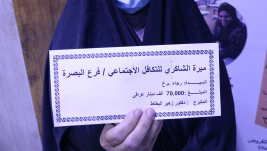 مبرة الشاكري للتكافل الأجتماعي / فرع البصرة
السيدة: رجاء .م.ع
المبلغ: 70,000 الف دينار عراقي
المتبرع : دكتور زهير البطاط